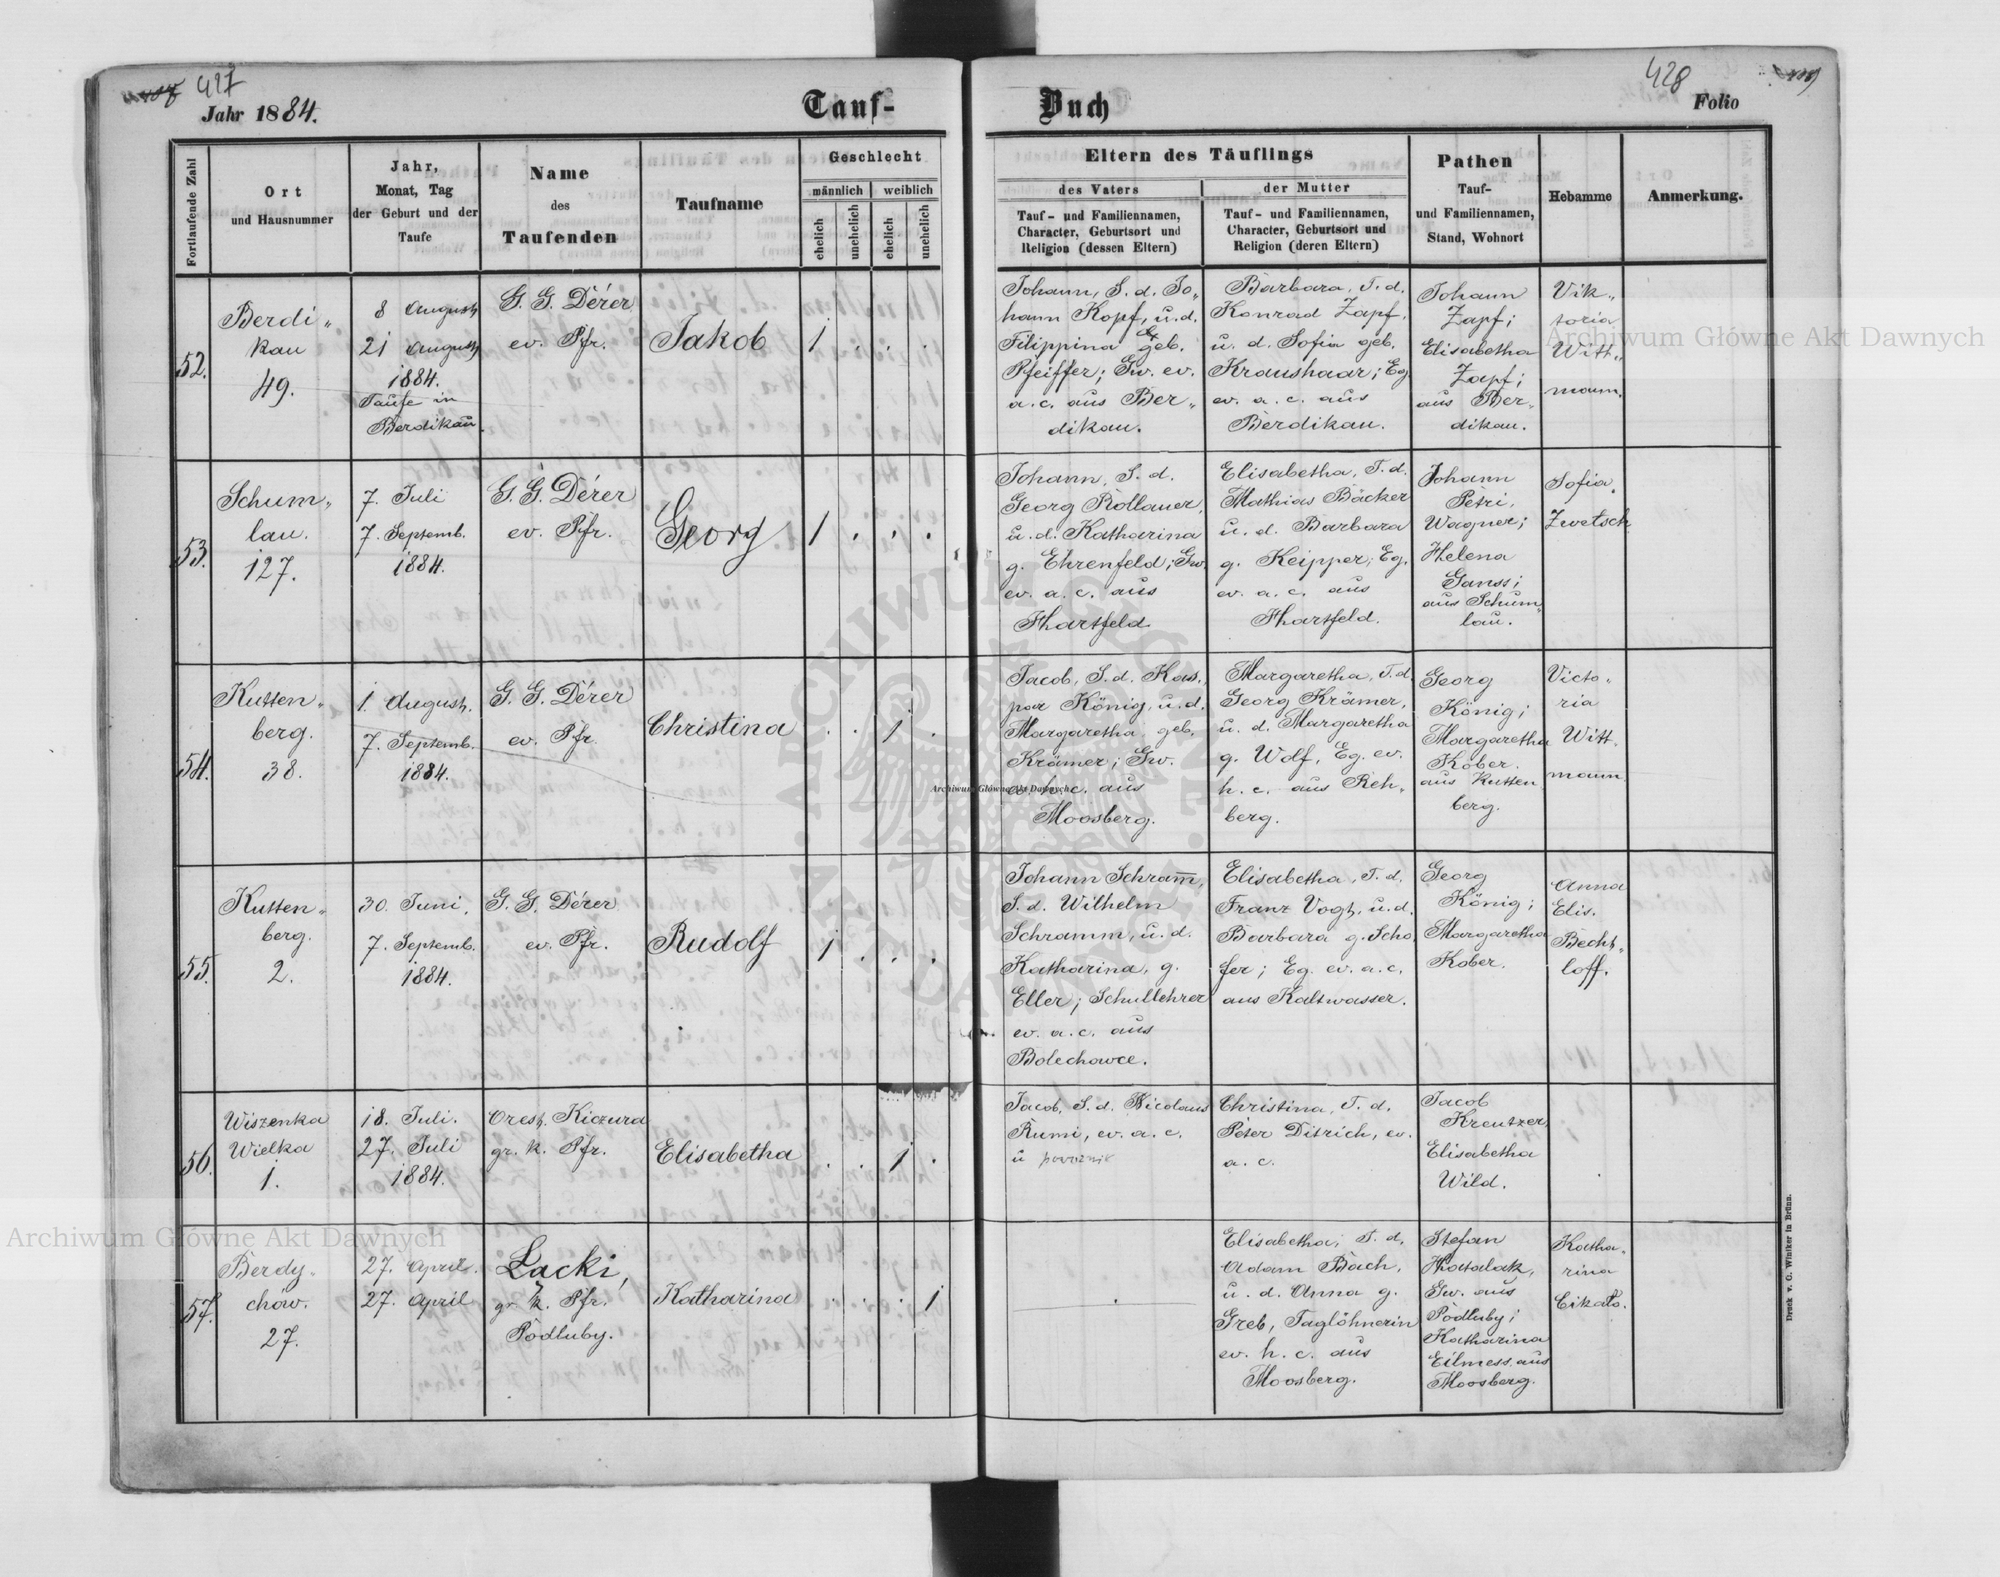 427
428
Jahr 1884.
Tauf-
Buch
Folio
Fortlaufende Zahl
Ort
und Hausnummer
Jahr,
Monat, Tag
der Geburt und der
Taufe
Name
des
Taufenden
Taufname
Geschlecht
männlich
weiblich
ehelich
unehelich
ehelich
unehelich
Eltern des Täuflings
des Vaters
der Mutter
Tauf- und Familiennamen,
Character, Geburtsort und
Religion (dessen Eltern)
Tauf- und Familiennamen,
Character, Geburtsort und
Religion (deren Eltern)
Pathen
Tauf-
und Familiennamen,
Stand, Wohnort
Hebamme
Anmerkung.
52.
Berdi„
kau
49.
8 August
21 August
1884.
Taufe in
Berdikau.
G. G. Dérer
ev. Pfr.
Jakob
1 . . .
Johann, S. d. Jo„
hann Kopf, u. d.
Filippina geb.
Pfeiffer; Gw. ev.
a. c. aus Ber„
dikau.
Barbara, T. d.
Konrad Zapf,
u. d. Sofia geb.
Kraushaar; Eg.
ev. a. c. aus
Berdikau.
Johann
Zapf;
Elisabetha
Zapf;
aus Ber„
dikau.
Vik„
toria
Witt„
mann.
53.
Schum„
lau.
127.
7. Juli
7. Septemb.
1884.
G. G. Dérer
ev. Pfr.
Georg
1 . . .
Johann, S. d.
Georg Rollauer,
u. d. Katharina
g. Ehrenfeld; Gw.
ev. a. c. aus
Hartfeld.
Elisabetha, T. d.
Mathias Bäcker
u. d. Barbara
g. Keipper; Eg.
ev. a. c. aus
Hartfeld.
Johann
Petri,
Wagner;
Helena
Ganss;
aus Schum„
lau.
Sofia
Zwetsch
54.
Kutten„
berg.
38.
1. August.
7. Septemb.
1884.
G. G. Dérer
ev. Pfr.
Christina
. . 1 .
Jacob, S. d. Kas„
par König, u. d.
Margaretha geb.
Krämer; Gw.
ev. h. c. aus
Moosberg.
Margaretha, T. d.
Georg Krämer,
u. d. Margaretha
g. Wolf, Eg. ev.
h. c. aus Reh„
berg.
Georg
König;
Margaretha
Kober.
aus Kutten„
berg.
Victo„
ria
Witt„
mann.
55.
Kutten„
berg.
2.
30. Juni,
7. Septemb.
1884.
G. G. Dérer
ev. Pfr.
Rudolf
1 . . .
Johann Schramm,
S. d. Wilhelm
Schramm, u. d.
Katharina, g.
Eller; Schullehrer
ev. a. c. aus
Bolechowce.
Elisabetha, T. d.
Franz Vogt, u. d.
Barbara g. Scho„
fer; Eg. ev. a. c.
aus Kaltwasser.
Georg
König;
Margaretha
Kober.
Anna
Elis.
Becht„
loff.
56.
Wiszenka
Wielka
1.
18. Juli.
27. Juli
1884.
Orest. Kiczura
gr. k. Pfr.
Elisabetha
. . 1 .
Jacob, S. d. Nicolaus
Rumi, ev. a. c.
u powoznik
Christina, T. d.
Peter Ditrich, ev.
a. c.
Jacob
Kreutzer,
Elisabetha
Wild.
.
57.
Berdy„
chow.
27.
27. April.
27. April
Lacki,
gr. k. Pfr.
Podluby.
Katharina
. . . 1
.
Elisabetha; T. d.
Adam Bach,
u. d. Anna g.
Greb, Taglöhnerin
ev. h. c. aus
Moosberg.
Stefan
Hatalak,
Gw. aus
Podluby;
Katharina
Eilmess, aus
Moosberg.
Katha„
rina
Cikalo.
Druck v. C. Winiker in Brünn.
Archiwum Główne Akt Dawnych
Archiwum Główne Akt Dawnych
Archiwum Główne Akt Dawnych
ARCHIWUM GŁÓWNE AKT DAWNYCH